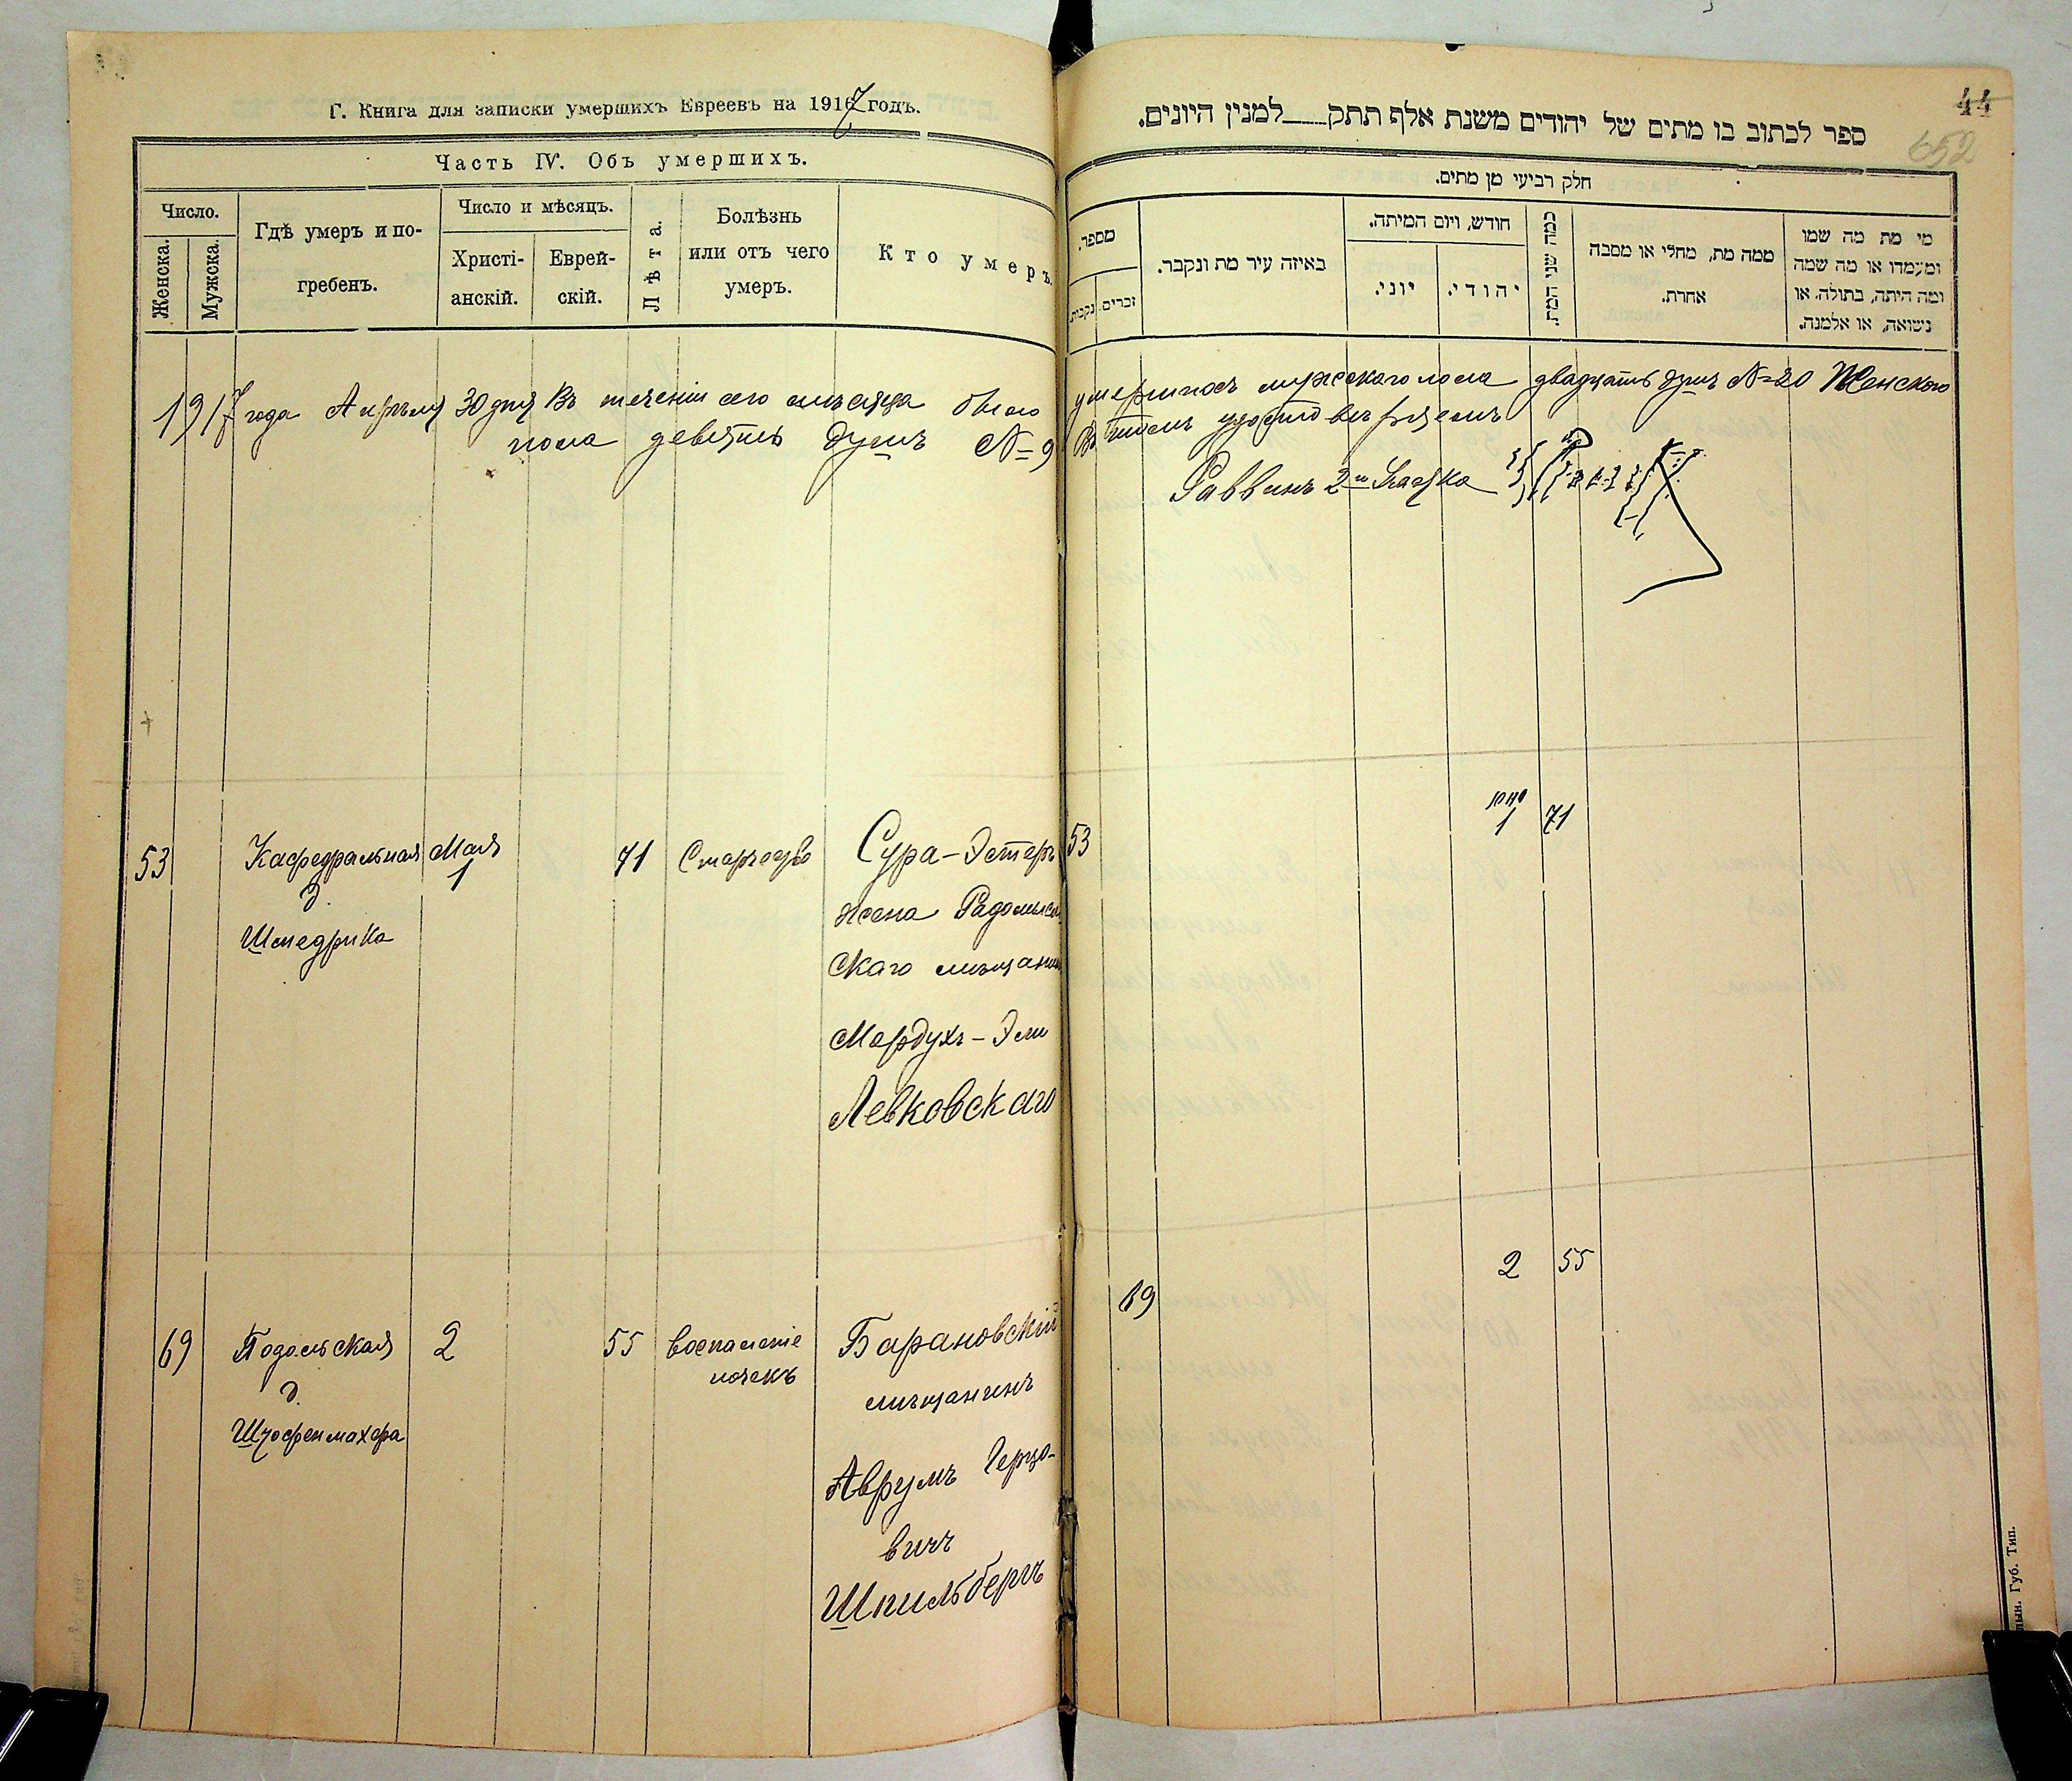 Г. Книга для записки умершихъ Евреевъ на 1917 годъ.
Часть IV. Объ умершихъ.
Число.
Женска.
Мужска.
Гдѣ умеръ и по-
гребенъ.
Число и мѣсяцъ.
Христі-
анскій.
Еврей-
скій.
Лѣта.
Болѣзнь
или отъ чего
умеръ.
Кто умеръ.
44
652
ספר לכתוב בו מתים של יהודים משנת אלף תתק למנין היונים.
חלק רביעי מן מתים.
מספר.
זכרים.
נקבות.
באיזה עיר מת ונקבר.
חודש, ויום המיתה.
יוני.
יהודי.
כמה שני המת.
ממה מת, מחלי או מסבה
אחרת.
מי מת מה שמו
ומעמדו או מה שמה
ומה היתה, בתולה, או
נשואה, או אלמנה.
1917 года Апрѣля 30 дня Въ теченіи сего мѣсяца было умершихъ мужескаго пола двадцать душъ №=20 Женскаго
пола девять душъ №=9 Въ томъ удостовѣряемъ
Раввинъ 2го Участка
53
Кафедральная
д.
Шмедрика
Мая
1
71
Старчество
Сура-Эстеръ
жена Радомысль
скаго мѣщанина
Мордухъ-Эли
Левковскаго
53
1
71
69
Подольская
д.
2
55
воспаленіе
почекъ
Барановскій
мѣщанинъ
Аврумъ Герцо-
вичъ
Шпильбергъ
69
2
55
Губ. Тип.